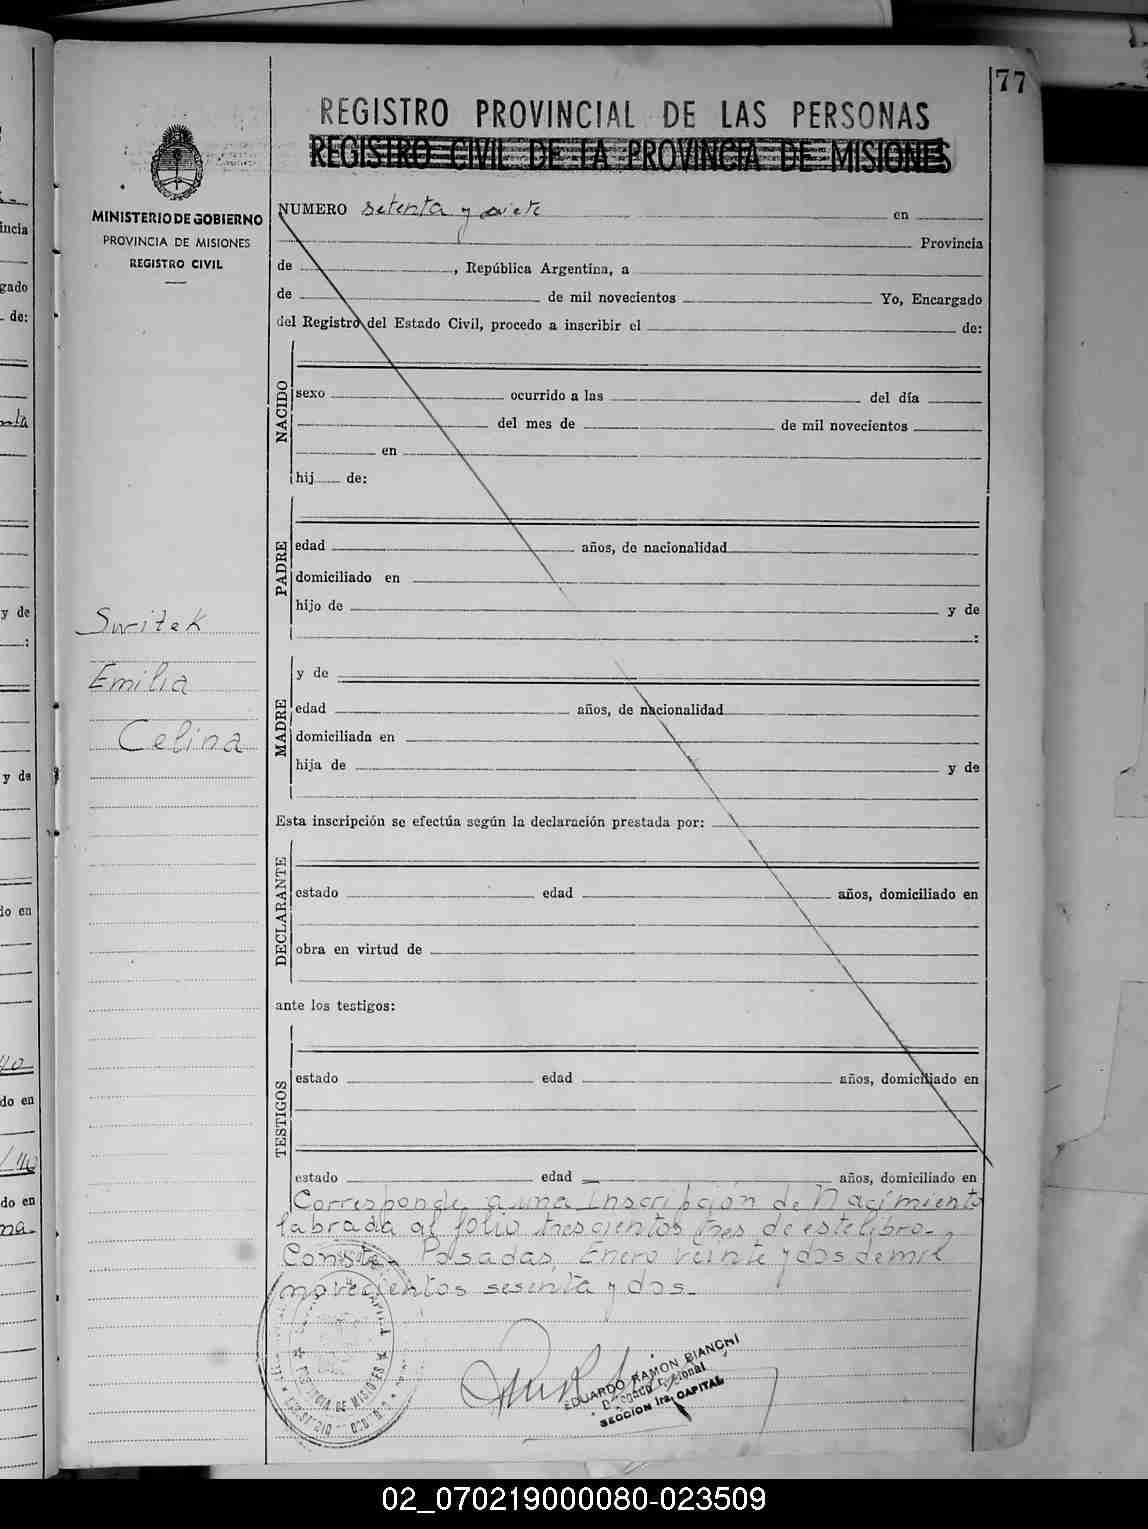 77
REGISTRO PROVINCIAL DE LAS PERSONAS
REGISTRO CIVIL DE LA PROVINCIA DE MISIONES
MINISTERIO DE GOBIERNO
PROVINCIA DE MISIONES
REGISTRO CIVIL
NUMERO setenta y siete en
Provincia
de , República Argentina, a
de de mil novecientos Yo, Encargado
del Registro del Estado Civil, procedo a inscribir el de:
NACIDO
sexo ocurrido a las del día
del mes de de mil novecientos
en
hij de:
PADRE
edad años, de nacionalidad
domiciliado en
hijo de y de
:
Switek
Emilia
Celina
MADRE
y de
edad años, de nacionalidad
domiciliada en
hija de y de
Esta inscripción se efectúa según la declaración prestada por:
DECLARANTE
estado edad años, domiciliado en
obra en virtud de
ante los testigos:
TESTIGOS
estado edad años, domiciliado en
estado edad años, domiciliado en
Corresponde a una Inscripción de Nacimiento
labrada al folio trescientos tres de este libro.-
Conste.- Posadas, Enero veinte y dos de mil
novecientos sesenta y dos.-
PROVINCIA DE MISIONES
EDUARDO RAMON BIANCHI
Delegado Seccional
SECCION 1ra. CAPITAL
02_070219000080-023509